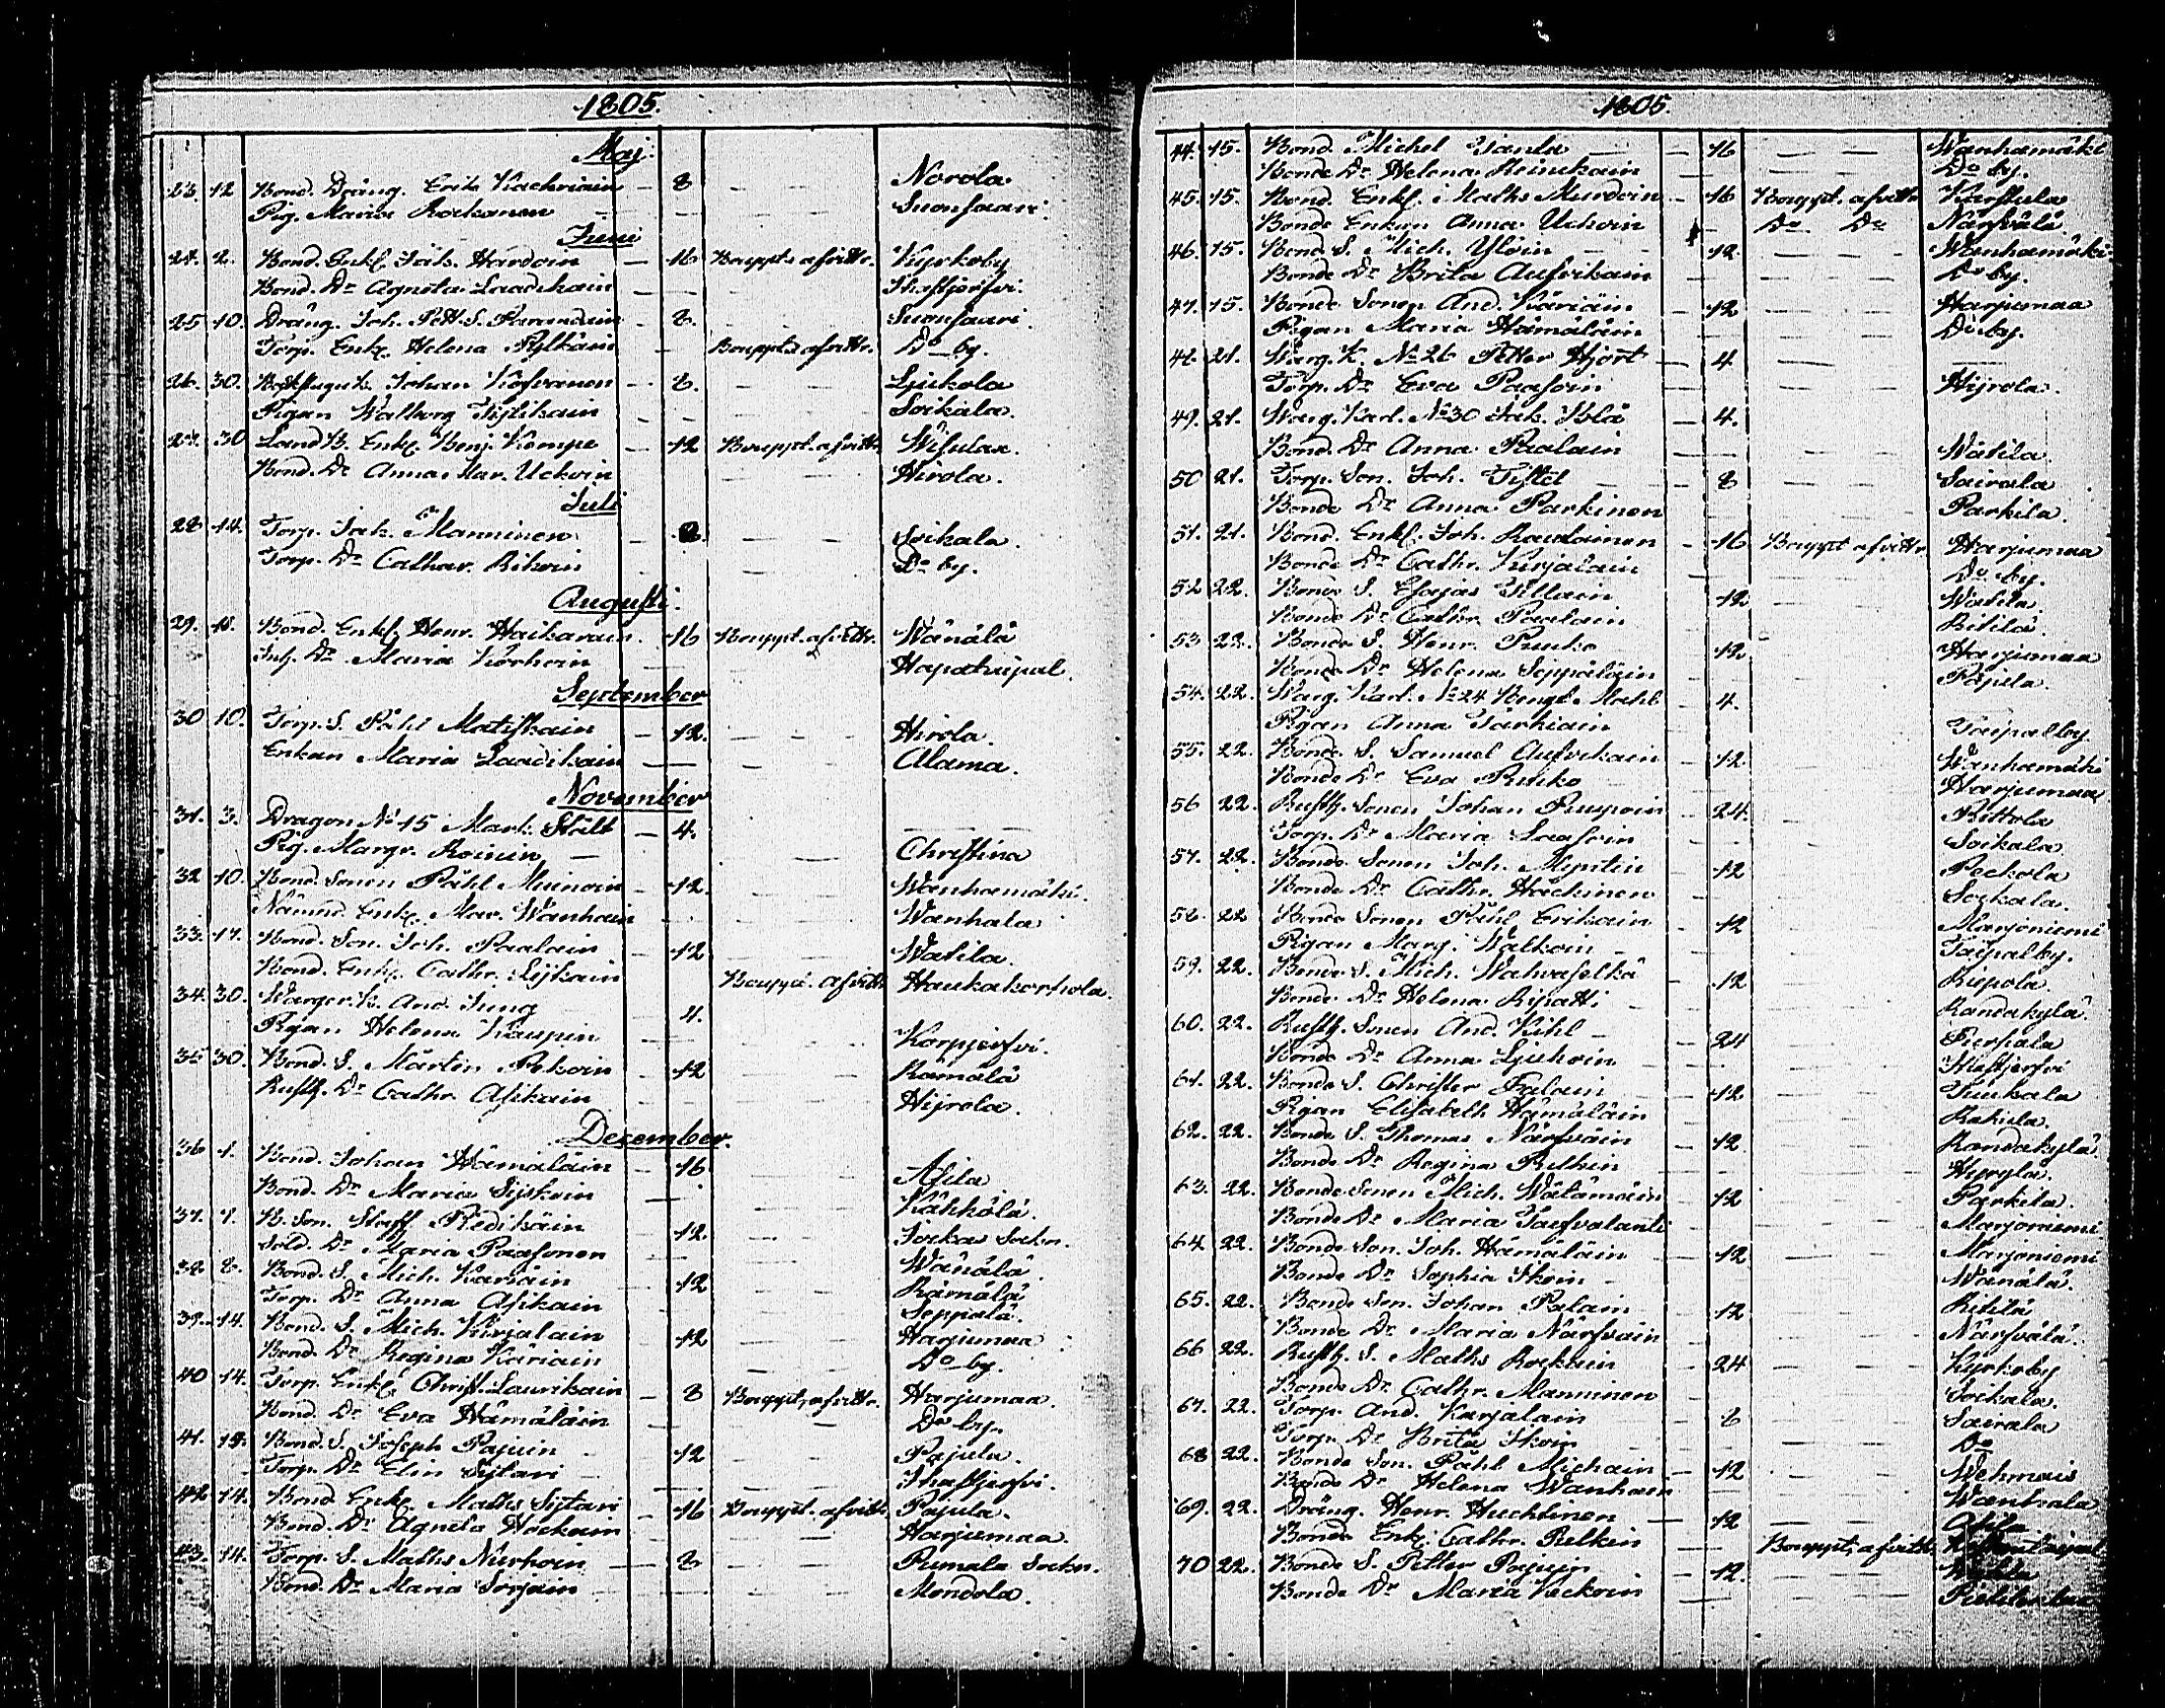 1805.
Maj.
23. 12 Bond. Dräng. Erik Kachriain — 8 — — Norola
Pig. Maria Rockonen — — — Suonsaari.
Juni
24. 2. Bond. Enkl. Jak. Hardoin — 16 Bouppt. afvittr. Kyrkoby
Bond. Dr Agneta Laadikain — — — Ihaftjerfvi.
25 10. Dräng. Joh. Pett. S. Parandain — 8. — — Suonsaari.
Torp. Enk. Helena Pylkäin — Bouppt. afvittr. Do by.
26. 30. Johan Kosvonen — 8. — — Ljukola
Pigan Walborg Tijlikain — — — Soikala.
27. 30 Land B. Enkl. Benj. Kempe — 12 Bouppt. afvittr. Wisulax.
Bond. Dr Anna Mar. Uckoin — — — Hirola.
Juli
28 14. Torp. Jak. Manninen — 8. — — Soikala.
Torp. Dr Cathar. Rikoin — — — Do by.
Augusti.
29. 18. Bond. Enkl. Henr. Haikarain. 16 Bouppt. afvittr. Wänälä
Inh. Dr Maria Korhoin — — — Hapataipal.
September
30 10. Torp. S. Påhl Matiskain — 12. — — Hirola.
Enkan Maria Laadikain — — — Alama.
November
31. 3. Dragon No 15 Mark. Stält — 4. — —
Pig. Margr. Roinin — — — Christina
32 10. Bond. Sonen Påhl Muinoin — 12. — — Wanhamäki.
Nämnd. Enk. Mar. Wanhain — — Wanhala
33. 17. Bond. Son. Joh. Paalain — 12 — — Watila.
Bond. Enk. Cathr. Lijkain Bouppt. afvittr. Haukakorhola.
34. 30. Warger. K. And. Jung 4. — —
Pigan Helena Kaupin — — — Korpjerfvi.
35 30. Bond. S. Mårten Pekoin — 12 — — Rämälä
Rusth. Dr Cathr. Asikain — — — Hijrola.
December.
36 1. Bond. Johan Hämäläin — 16 — — Asila
Bond. Dr Maria Sijskoin — — — Kähkölä.
37. 1. B. Son. Staff. Redikäin — 12. — — Jocka Sockn.
Sold. Dr Maria Paasonen — — — Wänälä
38 8. Bond. S. Mich. Kariäin — 12 — — Rämälä
Torp. Dr Anna Asikain — — — Seppälä.
39. 14. Bond. S. Mich. Kirjalain — 12 — — Harjumaa
Bond. Dr Regina Käriain — — — Do by.
40 14. Torp. Enkl. Christ. Laurikain — 8 Bouppt. afvittr. Harjumaa.
Bond. Dr Eva Hämäläin — — — Do by.
41. 14. Bond. S. Joseph Pajuin — 12 — — Pajula.
Torp. Dr Elin Sijtari — — — Ihaftjerfvi.
42 14. Bond. Enkl. Maths Sijtari — 16 Bouppt. afvittr. Pajula.
Bond. Dr Agneta Hockain — — — Harjumaa.
43. 14. Torp. S. Maths Nurhoin — 8 — — Pumala Sockn.
Bond. Dr Maria Sorjain — — — Mondola.
1805.
44. 15. Bond. Michel Janla — 16 — — Wanhamäki
Bonde Dr Helena Reinikain — — — Do by.
45. 15. Bond. Enkl. Maths Murdoin — 16 Bouppt. afvittr. Karstula
Bonde Enkan Anna Uckoin — Do Do Närfvälä.
46. 15. Bond. S. Mich. Ylöin — 12. — — Wanhamäki.
Bonde Dr Brita Aufvikain — — — Do by.
47. 15. Bonde Sonen And. Käriäin — 12 — — Harjumaa
Pigan Maria Hämäläin — — — Do by.
48. 21. Warg. K. No 26 Petter Hjort — 4 — —
Torp. Dr Eva Paasoin — — — Hijrola.
49. 21. Warg. Karl. No 30 Jak. Ablå — 4. — —
Bond. Dr Anna Paalain — — — Watila
50 21. Torp. Son. Joh. Tistel — 8 — — Sairala
Bonde Dr Anna Parkinen — — — Parkila.
51. 21. Bond. Enkl. Joh. Rautainen — 16 Bouppt. afvittr. Harjumaa
Bonde Dr Cathr. Kirjalain — — — Do by.
52 22. Bonde S. Esajas Tillain — 12 — — Watila.
Bonde Dr Cathr. Paalain — — — Ritilä.
53 22. Bonde S. Henr. Puuko — 12. — — Harjumaa
Bonde Dr Helena Seppäläin — — — Pajula.
54. 22. Warg. Karl. No 24 Bengt Mahl — 4. — —
Pigan Anna Tarkiain — — — Taipalby.
55. 22. Bonde S. Samuel Aufvikain — 12. — — Wanhamäki
Bonde Dr Eva Puuko — — — Harjumaa
56 22. Rusth. Sonen Johan Ruupoin — 24. — — Rittola
Torp. Dr Maria Laasoin — — — Soikala.
57. 22. Bonde Sonen Joh. Myntin — 12 — — Peckola
Bonde Dr Cathr. Häckinen — — — Soikala.
58. 22 Bonde Sonen Påhl Erikain — 12 — — Marjoniemi
Pigan Marg. Walkoin — — — Taipalby.
59. 22. Bonde S. Mich. Wahvaselkä — 12 — — Riepola.
Bonde Dr Helena Ripatti — — — Randakylä.
60. 22. Rusth. Sonen And. Kihl — 24 — — Pierhala
Bonde Dr Anna Ljukoin — — — Ihaftjerfvi
61. 22. Bonde S. Christer Falain — 12 — — Tuukala
Pigan Elisabeth Hämäläin — — — Rakula.
62. 22. Bonde S. Thomas Närfväin — 12. — — Randakylä.
Bonde Dr Regina Relkin — — — Hyryla.
63. 22. Bonde Sonen Mich. Wätämäin — 12 — — Parkila.
Bonde Dr Maria Taufvalanti — — — Marjoniemi
64 22. Bonde Son. Joh. Hämäläin — 12 — — Marjoniemi
Bonde Dr Sophia Ikoin — — — Wänälä.
65. 22. Bonde Son. Johan Palain — 12 — — Ritilä
Bonde Dr Maria Närfväin — — — Närfvälä.
66 22. Rusth. S. Maths Rockain — 24 — — Kyrkoby
Bonde Dr Cathr. Manninen — — — Soikala.
67. 22. Torp. And. Karjalain — 8 — — Sairala
Torp. Dr Brita Ikoin — — — Do
68 22. Bonde Son. Påhl Michain — 12 — — Wehmais
Bonde Dr Helena Wanhain — — — Wanhala
69. 22. Dräng. Henr. Huchtinen — 12 — — Asila
Bonde Enk. Cathr. Relkin — Bouppt. afvittr.
70 22. Bonde S. Petter Pajuin — 12. — —
Bonde Dr Maria Veckoin — — —